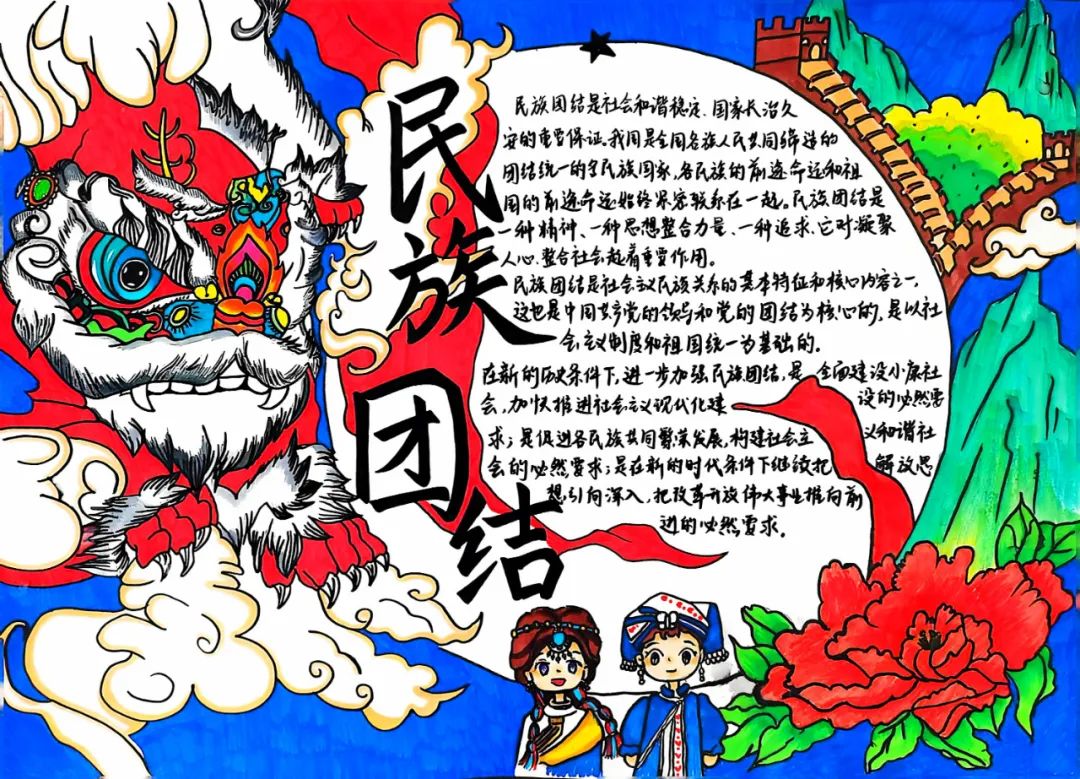 民族团结
民族团结是社会和谐稳定、国家长治久
安的重要保证,我国是全国各族人民共同缔造的
团结统一的多民族国家,各民族的前途命运和祖
国的前途命运始终紧密联系在一起。民族团结是
一种精神、一种思想整合力量、一种追求,它对凝聚
人心、整合社会起着重要作用。
民族团结是社会主义民族关系的基本特征和核心内容之一,
这也是中国共产党的领导和党的团结为核心的,是以社
会主义制度和祖国统一为基础的。
在新的历史条件下,进一步加强民族团结,是 全面建设小康社
会,加快推进社会主义现代化建 设的必然要
求;是促进各民族共同繁荣发展,构建社会主 义和谐社
会的必然要求;是在新的时代条件下继续把 解放思
想引向深入,把改革开放伟大事业推向前
进的必然要求。